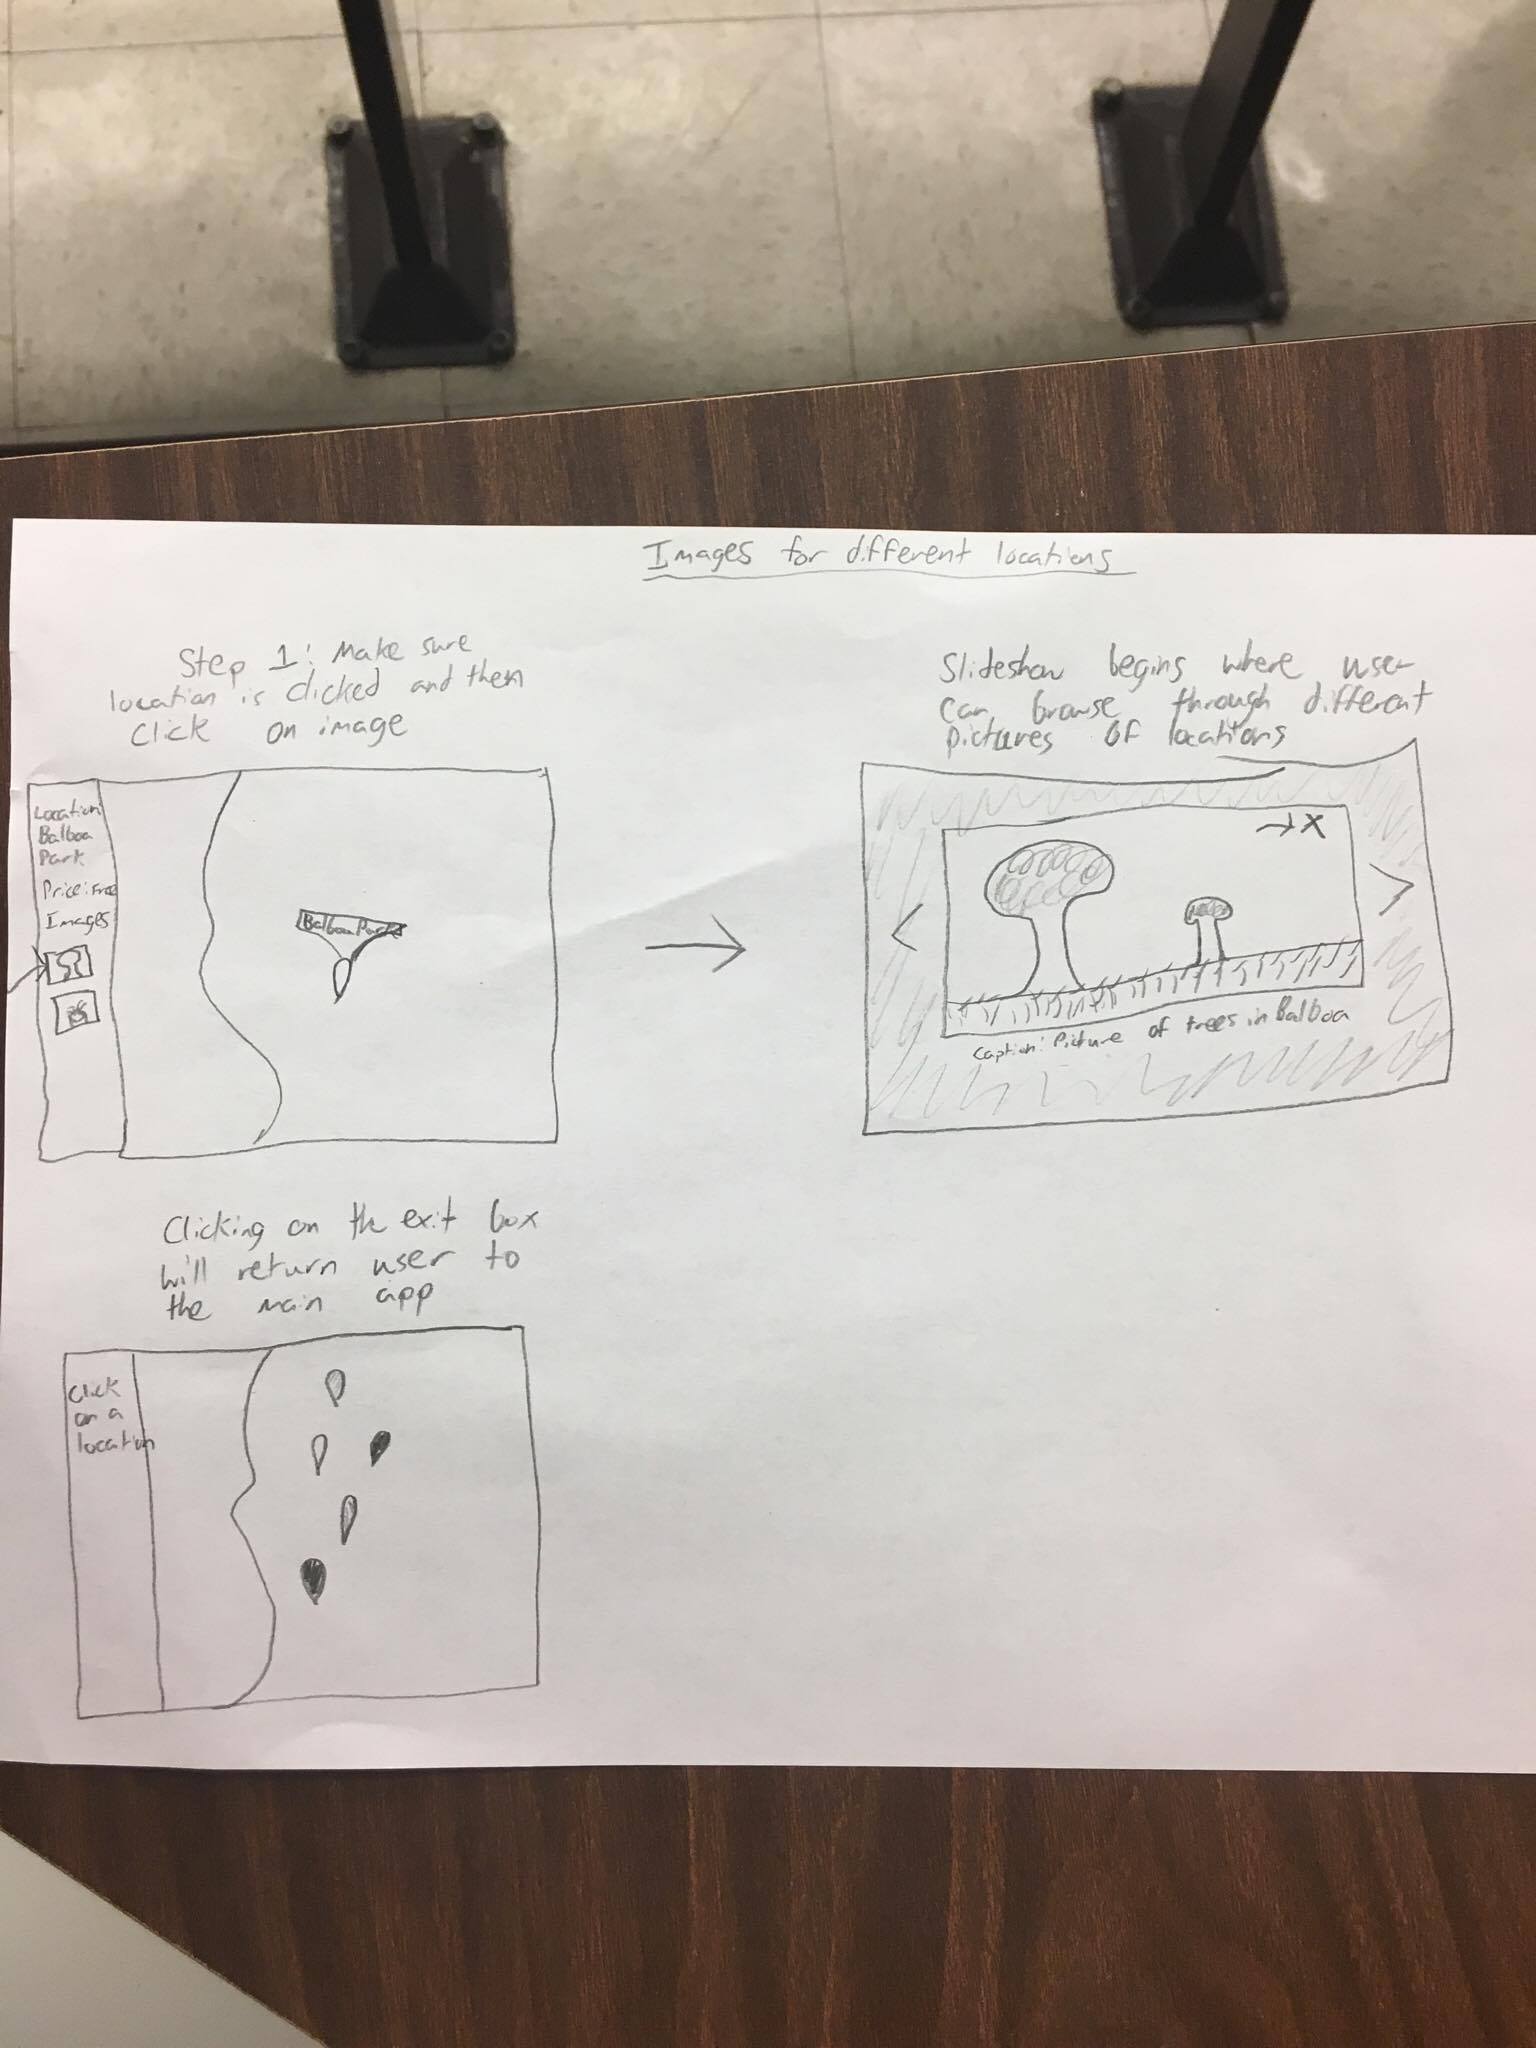 Images for different locations
Step 1: Make sure
location is clicked and then
click on image
Location
Balboa
Park
Price: Free
Images
Balboa Park
Slideshow begins where user
can browse through different
pictures of locations
→X
<
>
Caption: Picture of trees in Balboa
Clicking on the exit box
will return user to
the main app
Click
on a
location